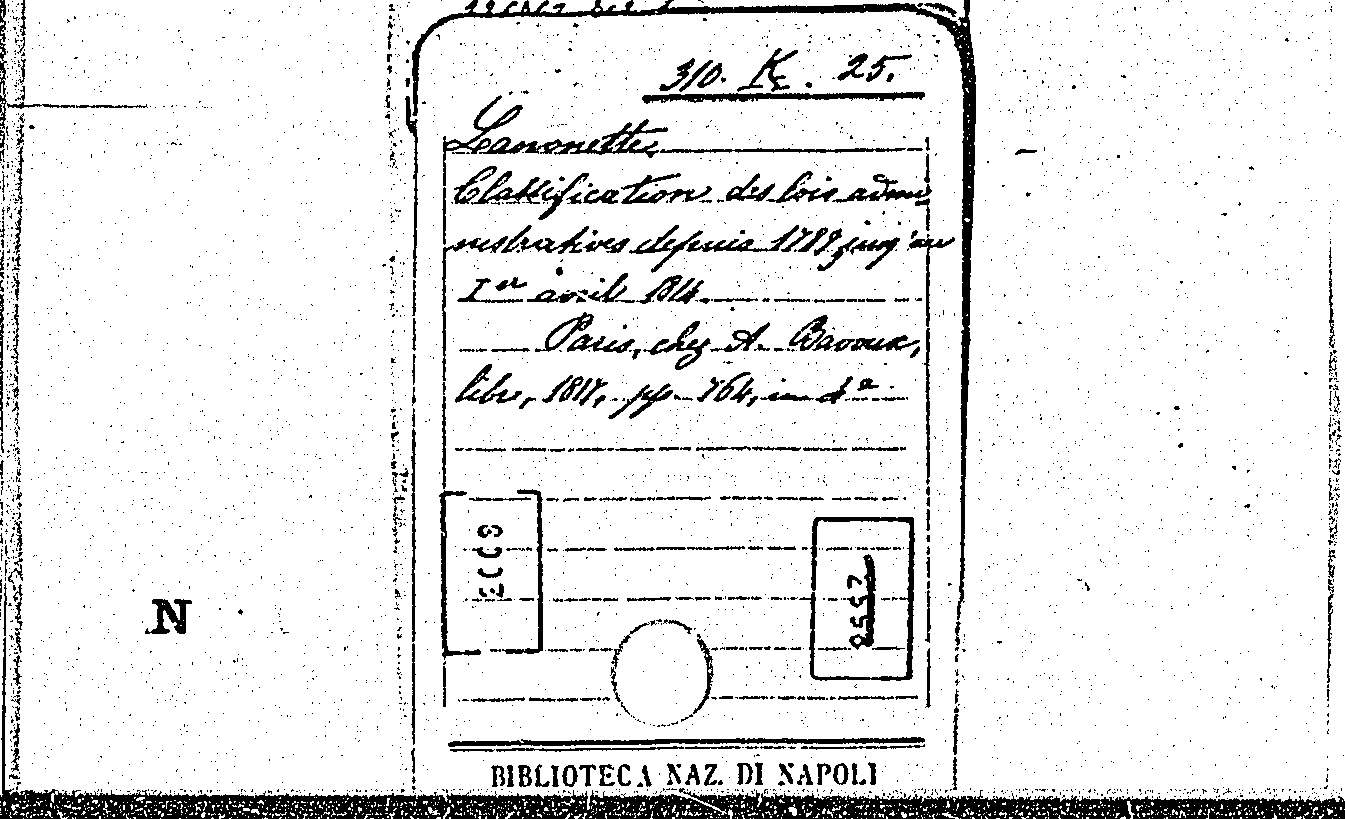 310. K. 25.
Lanonette
Classification des lois admi
nistratives depuis 1789 jusq'au
Ier avril 1814.
Paris, chez A. Bavoux,
libr., 1817, pp. 764, in 4°.
N
BIBLIOTECA NAZ. DI NAPOLI